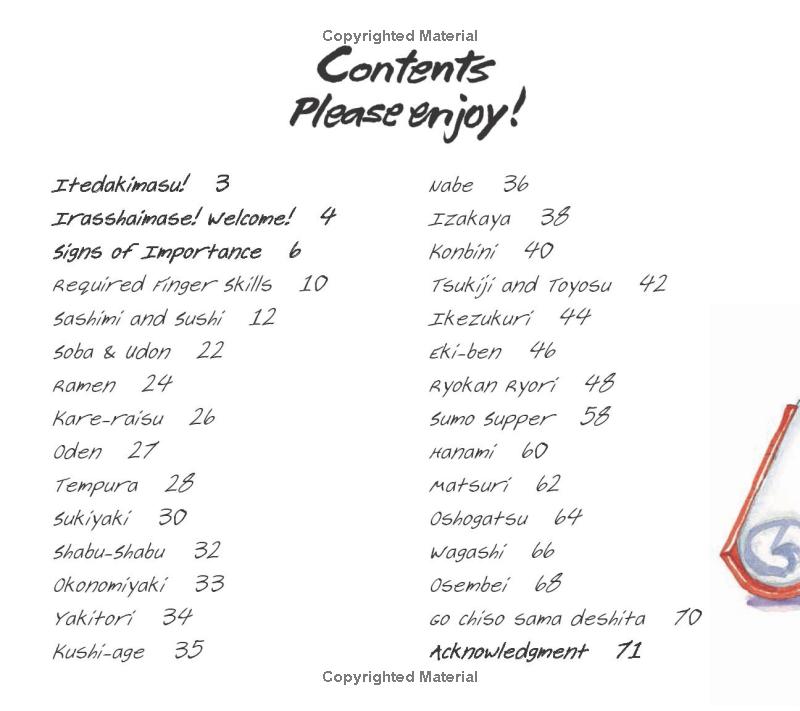 Copyrighted Material
Contents
Please enjoy!
Itedakimasu! 3
Irasshaimase! Welcome! 4
Signs of Importance 6
Required Finger Skills 10
Sashimi and Sushi 12
Soba & Udon 22
Ramen 24
Kare-raisu 26
Oden 27
Tempura 28
Sukiyaki 30
Shabu-Shabu 32
Okonomiyaki 33
Yakitori 34
Kushi-age 35
Nabe 36
Izakaya 38
Konbini 40
Tsukiji and Toyosu 42
Ikezukuri 44
Eki-ben 46
Ryokan Ryori 48
Sumo Supper 58
Hanami 60
Matsuri 62
Oshogatsu 64
Wagashi 66
Osembei 68
Go chiso sama deshita 70
Acknowledgment 71
Copyrighted Material